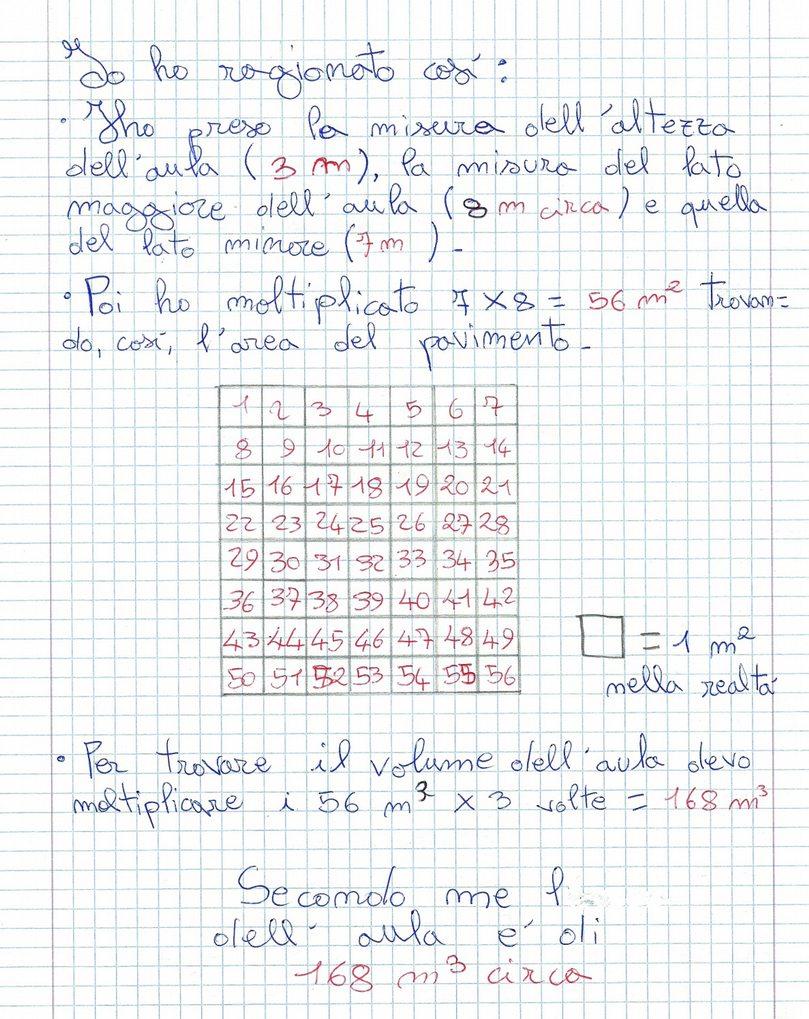 Io ho ragionato così:
• Iho preso la misura dell'altezza
dell'aula (3 m), la misura del lato
maggiore dell'aula (8 m circa) e quella
del lato minore (7 m ) -
• Poi ho moltiplicato 7 × 8 = 56 m² trovan=
do, così, l'area del pavimento -
1 2 3 4 5 6 7
8 9 10 11 12 13 14
15 16 17 18 19 20 21
22 23 24 25 26 27 28
29 30 31 32 33 34 35
36 37 38 39 40 41 42
43 44 45 46 47 48 49
50 51 52 53 54 55 56
= 1 m²
nella realtà
• Per trovare il volume dell'aula devo
moltiplicare i 56 m³ × 3 volte = 168 m³
Secondo me l
dell' aula e' di
168 m³ circa